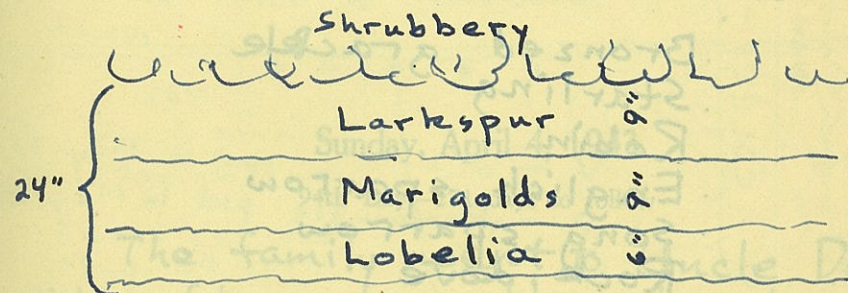 Shrubbery
Larkspur 9"
24" Marigolds 9"
Lobelia 6"